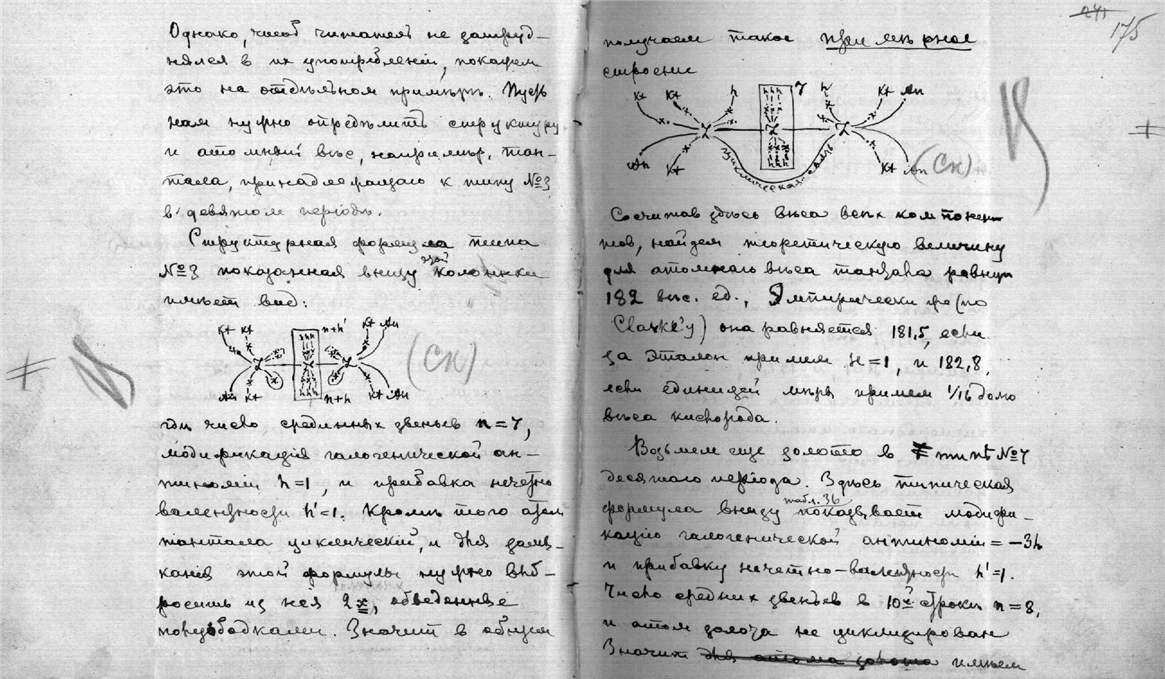 Однако, чтоб читатель не затруд-
нялся в их употребленіи, покажем
это на отдѣльном примѣрѣ. Пусть
нам нужно опредѣлить структуру
и атомный вѣс, напримѣр, тан-
тала, принадлежащаго к типу №3
в девятом періодѣ.
Структурная формула типа
№3 показанная внизу этой колонки
имѣет вид:
Kt Kt n+h' Kt An
An Kt n+h Kt An
(СК)
гдѣ число срединных звеньев n=7,
модификація галогенической ан-
тиноміи h=1, и прибавка нечетно
валентности h'=1. Кромѣ того атом
тантала циклическій, и для замы-
канія этой формулы нужно выб-
росить из нея 2 x, обведенные
полуободками. Значит в общем
241
175
получаем такое примѣрное
строеніе
Kt Kt h 7 h' Kt An
An Kt Kt An
циклическая связь
(СК)
Сосчитав здѣсь вѣса всѣх компонен-
тов, найдем теоретическую величину
для атомнаго вѣса тантала равную
182 вѣс. ед., Эмпирически же (по
Clarke'у) она равняется 181,5, если
за эталон примем H=1, и 182,8,
если единицей мѣры примем 1/16 долю
вѣса кислорода.
Возьмем еще золото в типѣ №7
десятаго періода. Здѣсь типическая
формула внизу табл. 36 показывает модифи-
кацію галогенической антиноміи = -3h
и прибавку нечетно-валентности h'=1.
Число средних звеньев в 10й строкѣ n=8,
и атом золота не циклизирован
Значит для атома золота имѣем